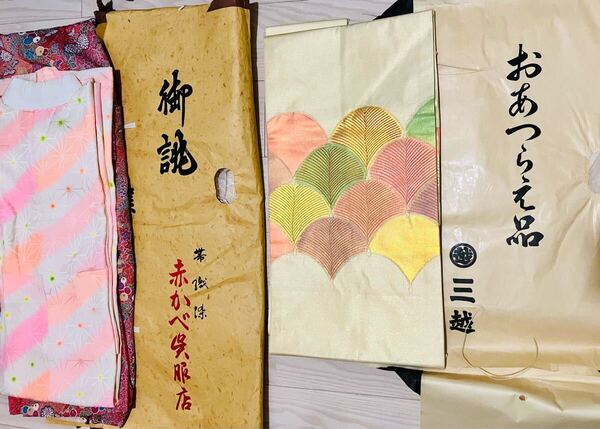 御誂
帯織染
赤かべ呉服店
おあつらえ品
越
三越